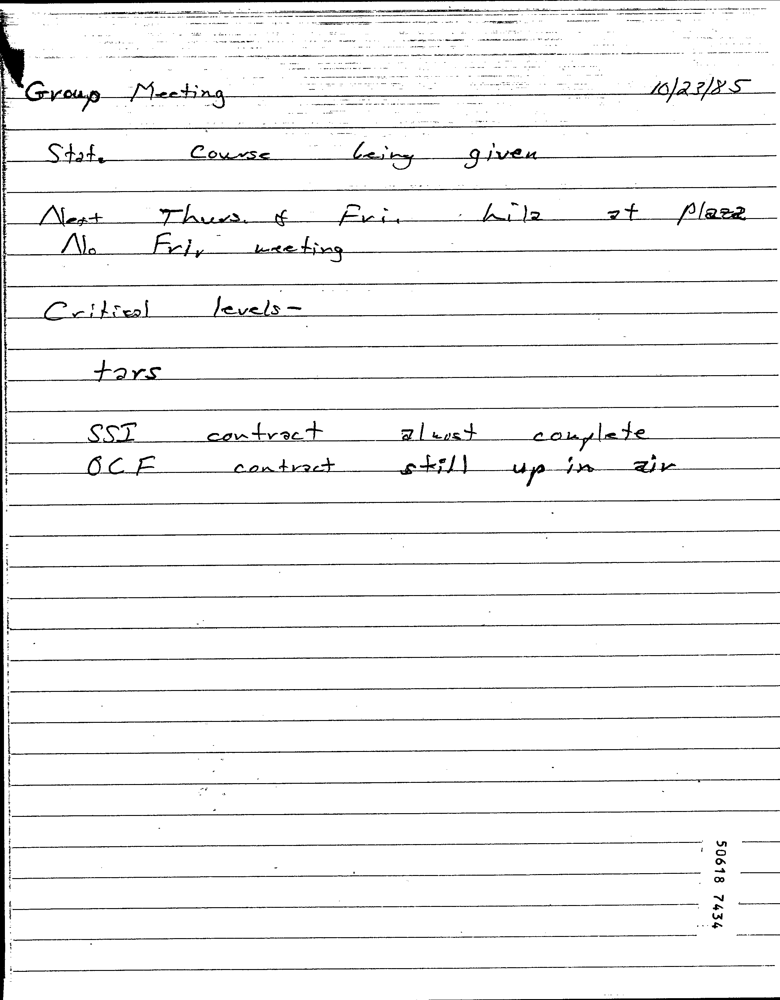 Group Meeting 10/23/85
Stat. Course being given
Next Thurs. & Fri. at Plaza
No Fri. meeting
Critical levels-
tars
SSI contract almost complete
OCF contract still up in air
50618 7434